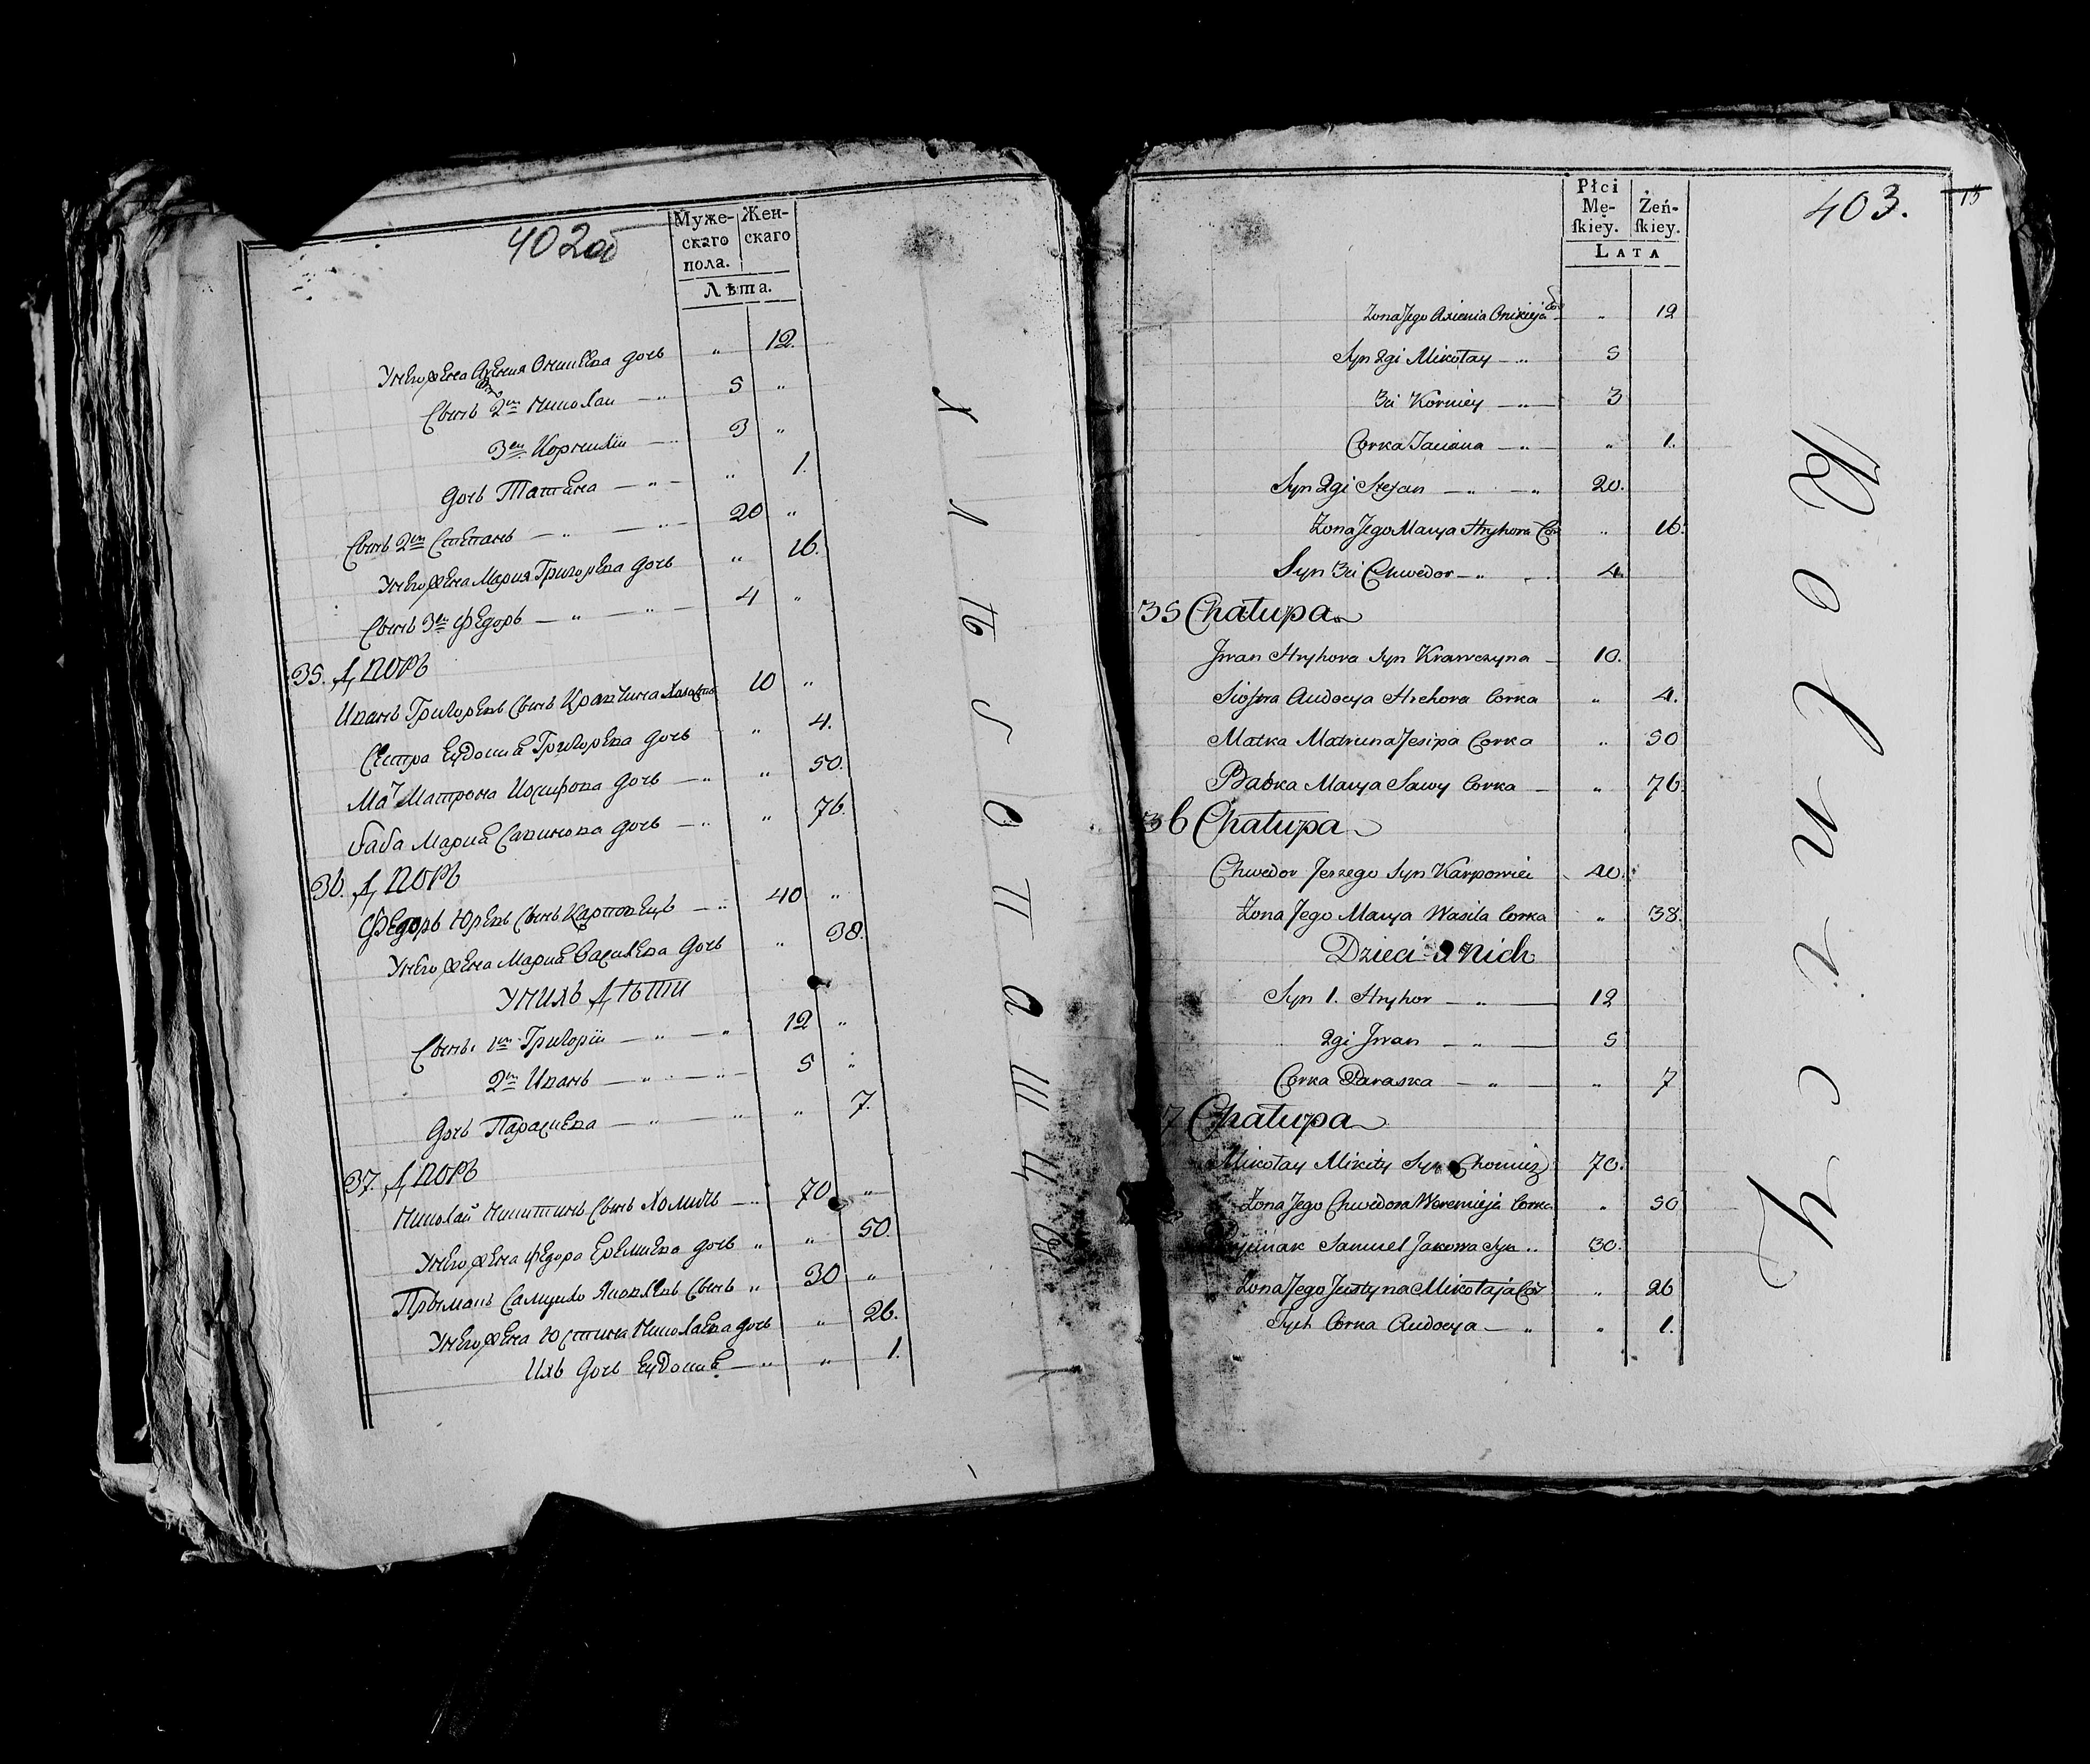 402об
Муже- Жен-
скаго скаго
пола.
Лѣта.
У него жена Аксения Оникиева дочь " 12.
Сынъ 2й Николай — " 5 "
3й Корнилiй — " 3 "
дочь Татiана — " — " 1.
Сынъ 2й Степанъ — " — " 20 "
У него жена Мария Григорьева дочь " 16.
Сынъ 3й Федоръ — " — " — 4 "
35. Дворъ
Иванъ Григорьевъ Сынъ Кравчина 10 "
Сестра Евдокия Григорьева дочь " 4.
Мат Матрона Иосифова дочь — " " 50.
баба Мария Савинова дочь — " " 76.
36. Дворъ
Федоръ Юрьевъ Сынъ Карповецъ — " 40 "
У него жена Мария Василева дочь " 38.
У нихъ Дѣти
Сынъ 1й Григорiй — " — " 12 "
2й Иванъ — " — " — 5 "
дочь Параскева — " — " " 7.
37. Дворъ
Николай Никитинъ Сынъ Хомичъ — " 70 "
У него жена Федора Еремиева дочь " " 50.
Прыймакъ Самуило Яковлевъ Сынъ " 30 "
У него жена Юстина Николаева дочь " 26.
Ихъ дочь Евдокия — " " 1.
Хлѣбопашцы
403.
15
Płci
Mę- Żeń-
skiey. skiey.
LATA
Żona Jego Axienia Onikieja Cor " 12
Syn 2gi Mikołay — " 5
3ci Korniey — " — 3
Corka Taciana — " — " 1.
Syn 2gi Stefan — " — " 20.
Żona Jego Marya Hryhora Cor " 16.
Syn 3ci Chwedor — " 4.
35 Chałupa
Jwan Hryhora Syn Krawczyna — 10.
Siostra Audocya Hrehora Corka " 4.
Matka Matruna Jesipa Corka " 50
Babka Marya Sawy Corka — " 76.
36 Chałupa
Chwedor Jerzego Syn Karpowiec 40.
Żona Jego Marya Wasila Corka " 38.
Dzieci z nich
Syn 1. Hryhor — " — 12
2gi Jwan — " — 5
Corka Paraska — " — " 7
7 Chałupa
Mikołay Mikity Syn Chomicz 70.
Żona Jego Chwedora Weremieja Corka " 50
Samuel Jakowa Syn " 30.
Żona Jego Justyna Mikołaja Cor " 26
Tych Corka Audocya — " " 1.
Rolnicy